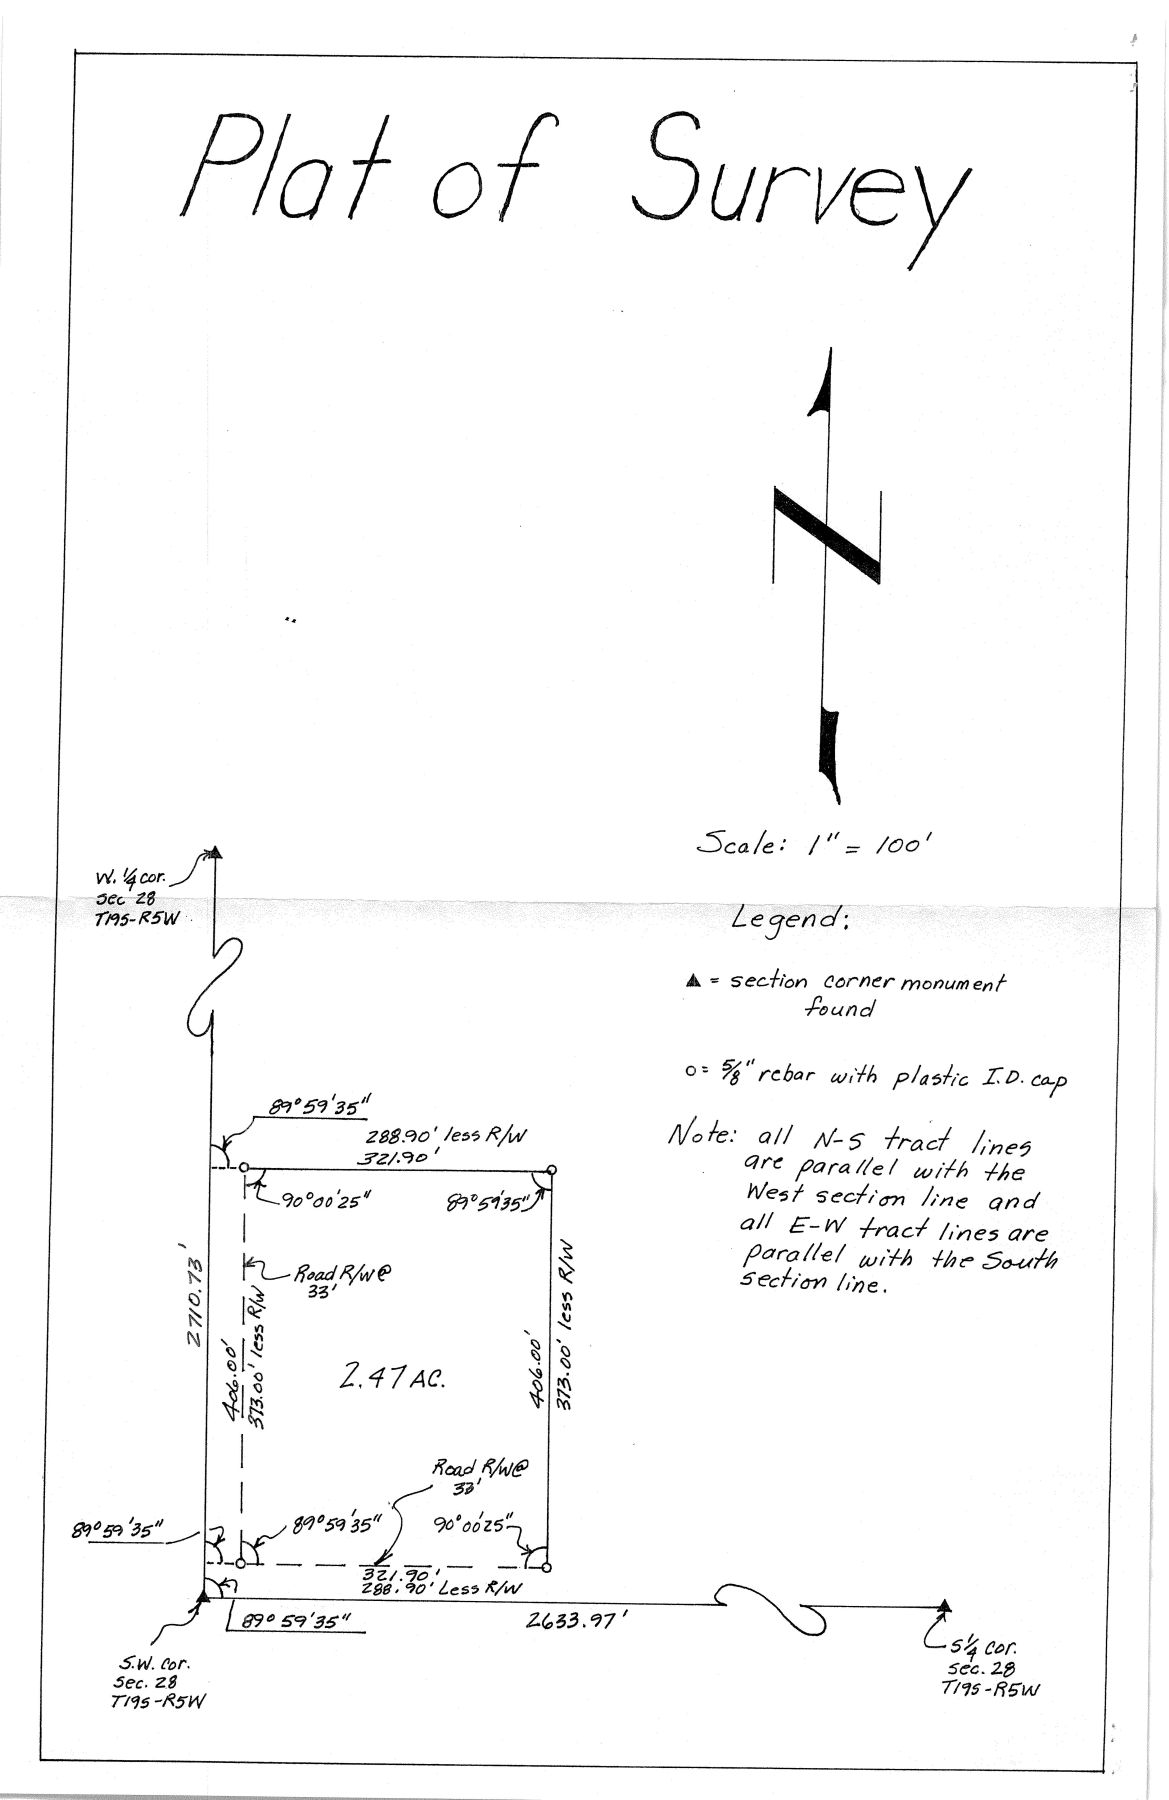 Plat of Survey
N
Scale: 1" = 100'
W. 1/4 cor.
Sec 28
T19S-R5W
Legend:
▲ = section corner monument
found
o = 5/8" rebar with plastic I.D. cap
Note: all N-S tract lines
are parallel with the
West section line and
all E-W tract lines are
parallel with the South
section line.
89°59'35"
288.90' less R/W
321.90'
90°00'25"
89°59'35"
2710.73'
Road R/W@
33'
406.00'
373.00' less R/W
2.47 AC.
406.00'
373.00' less R/W
Road R/W@
33'
89°59'35"
89°59'35"
90°00'25"
321.90'
288.90' Less R/W
89°59'35"
2633.97'
S.W. cor.
Sec. 28
T19S-R5W
S 1/4 cor.
Sec. 28
T19S-R5W